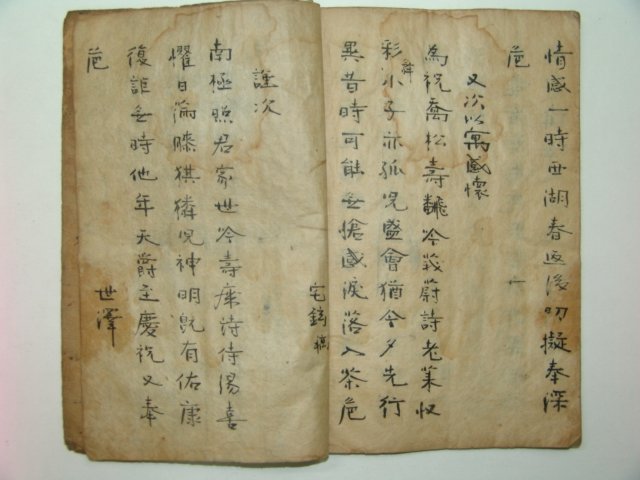 情感一時西湖春返後叨擬奉深
卮
又次以寓感懷
為祝喬松壽 今莪蔚詩老萊
舞
彩小子亦孤况盛會猶今夕先行
異昔時可能無愴感淚落入茶卮
宅鎬
謹次
南極照君家世冷壽席詩侍湯喜
懼日 膝猉獜児神明既有佑康
復詎無時他年天爵至慶祝又奉
卮
世澤